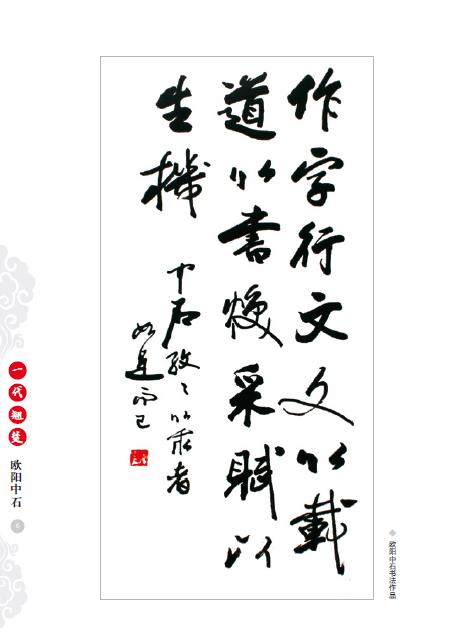 作字行文文以載
道以書焕采賦以
生機
中石孜〻以求者
如是而已
一代翘楚
欧阳中石
6
欧阳中石书法作品